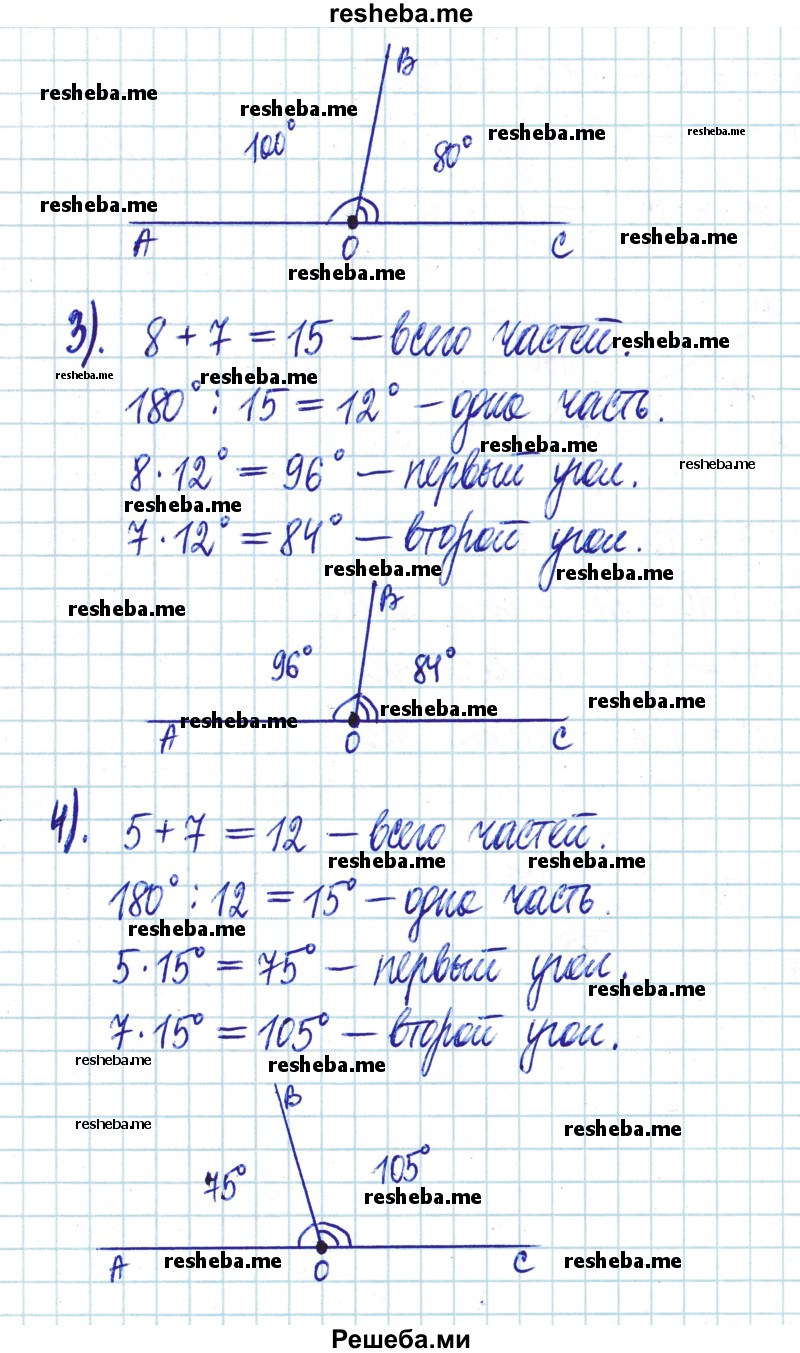 resheba.me
B
resheba.me
resheba.me
100°
resheba.me
resheba.me
80°
resheba.me
resheba.me
A
O
C
resheba.me
3). 8 + 7 = 15 – всего частей.
resheba.me
resheba.me
resheba.me
180° : 15 = 12° – одна часть.
resheba.me
8 · 12° = 96° – первый угол.
resheba.me
resheba.me
7 · 12° = 84° – второй угол.
resheba.me
resheba.me
B
resheba.me
96°
84°
resheba.me
resheba.me
resheba.me
A
O
C
4). 5 + 7 = 12 – всего частей.
resheba.me
resheba.me
180° : 12 = 15° – одна часть.
resheba.me
5 · 15° = 75° – первый угол.
resheba.me
7 · 15° = 105° – второй угол.
resheba.me
resheba.me
B
resheba.me
resheba.me
75°
105°
resheba.me
A
resheba.me
O
C
resheba.me
Решеба.ми